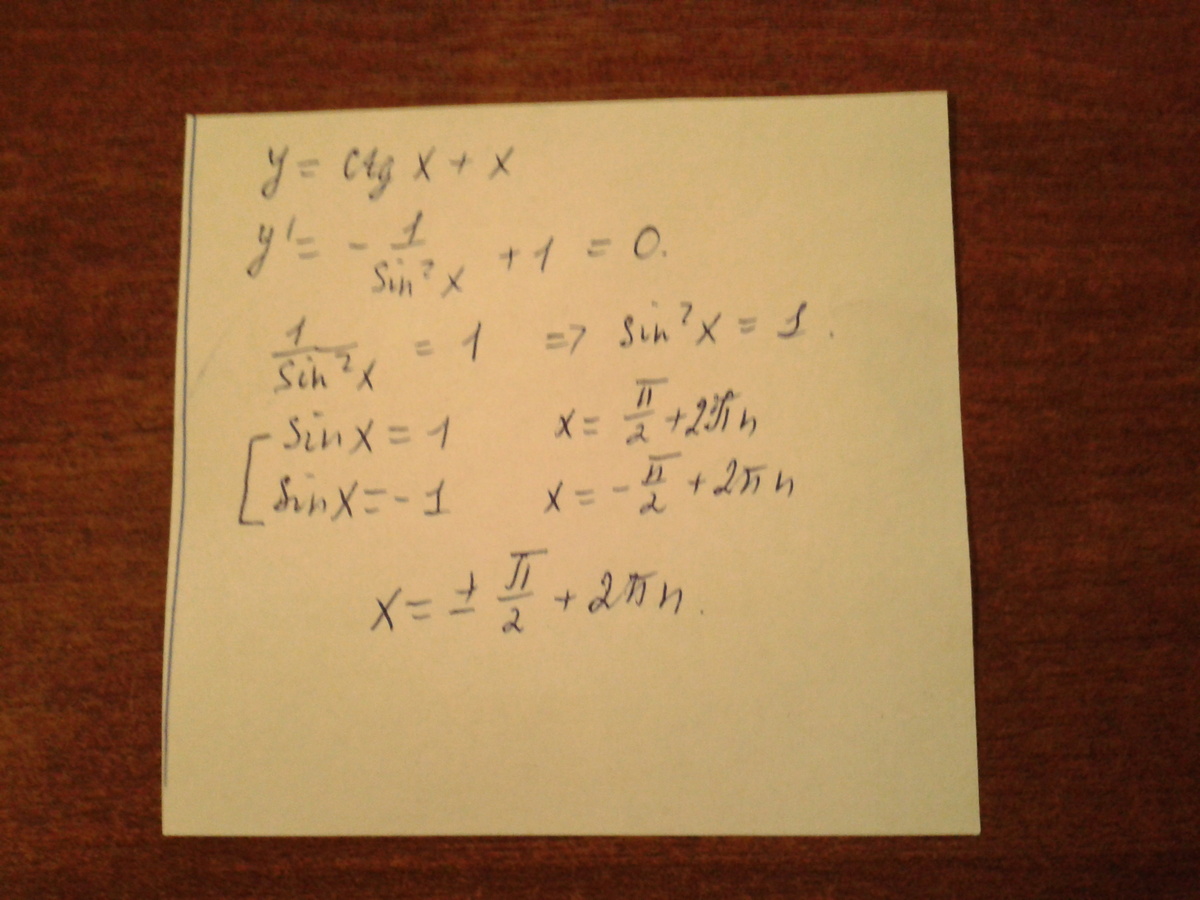 y = ctg x + x
y' = - 1/sin²x + 1 = 0.
1/sin²x = 1 => sin²x = 1.
[ sin x = 1 x = π/2 + 2πn
sin x = - 1 x = - π/2 + 2πn
x = ± π/2 + 2πn.